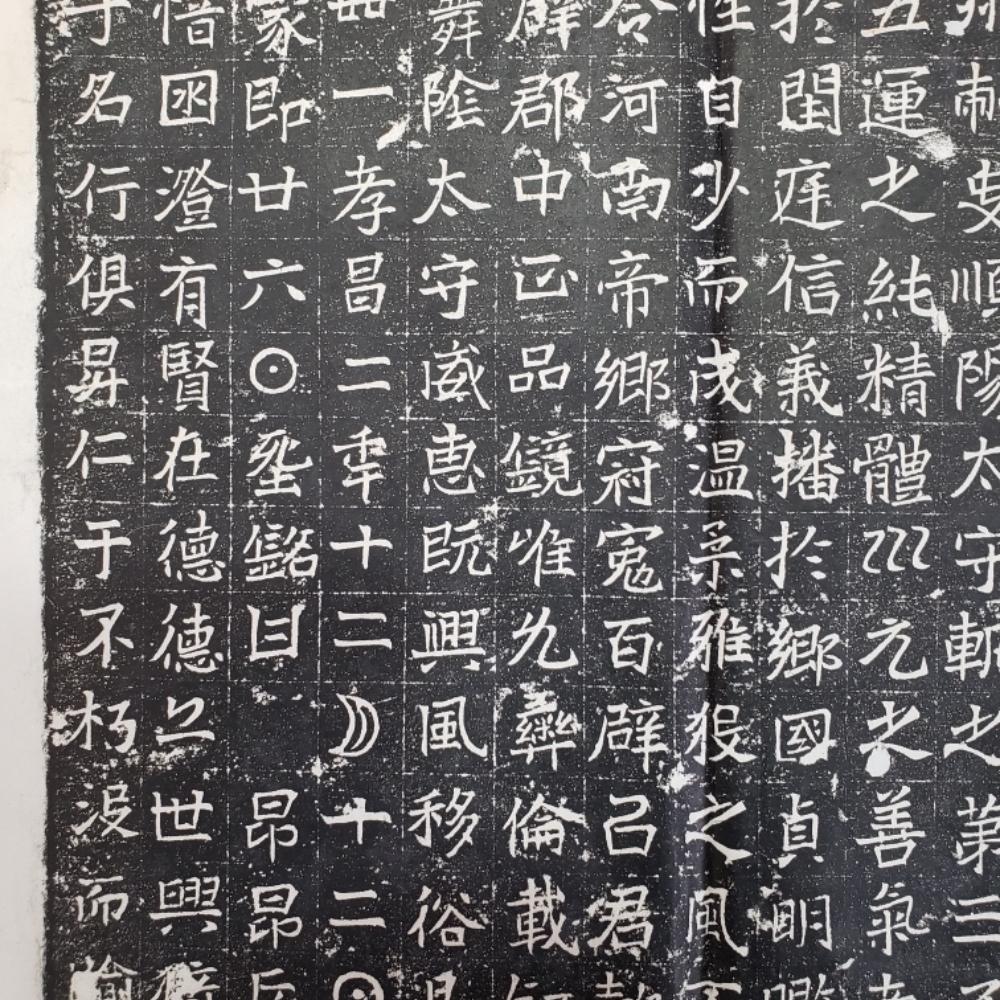 州刺史順陽太守斬之第三
五運之純精體巛元之善氣
於閨庭信義播於鄉國貞明
性自少而成温柔雅之風
令河南帝鄉冠冕百辟己君
辟郡中正品鏡唯允彝倫載
舞陰太守威惠既興風移俗
一孝昌二年十二月十二⊙
冢即廿六⊙銘曰昂昂
惜囦澄有賢在德德上世興
于名行俱昇仁于不朽没而